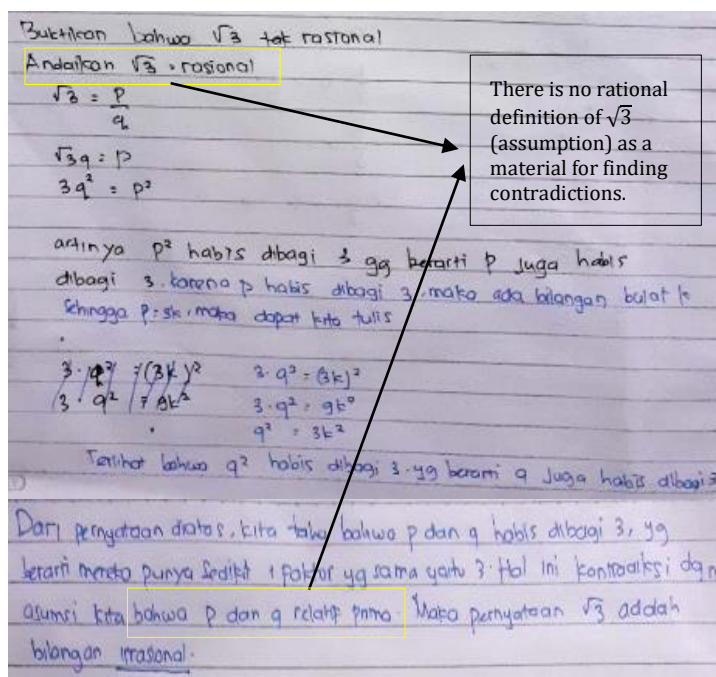 Buktikan bahwa √3 tak rasional
Andaikan √3 = rasional
√3 = p/q
√3 q = p
3q² = p²
There is no rational
definition of √3
(assumption) as a
material for finding
contradictions.
artinya p² habis dibagi 3 yg berarti p juga habis
dibagi 3. karena p habis dibagi 3, maka ada bilangan bulat k
sehingga p = 3k, maka dapat kita tulis
3 · q² = (3k)²
3 · q² = 9k²
3 · q² = (3k)²
3 · q² = 9k²
q² = 3k²
Terlihat bahwa q² habis dibagi 3 yg berarti q juga habis dibagi 3
Dari pernyataan diatas, kita tahu bahwa p dan q habis dibagi 3, yg
berarti mereka punya sedikit 1 faktor yg sama yaitu 3. Hal ini kontradiksi dgn
asumsi kita bahwa p dan q relatif prima. Maka pernyataan √3 adalah
bilangan irrasional.